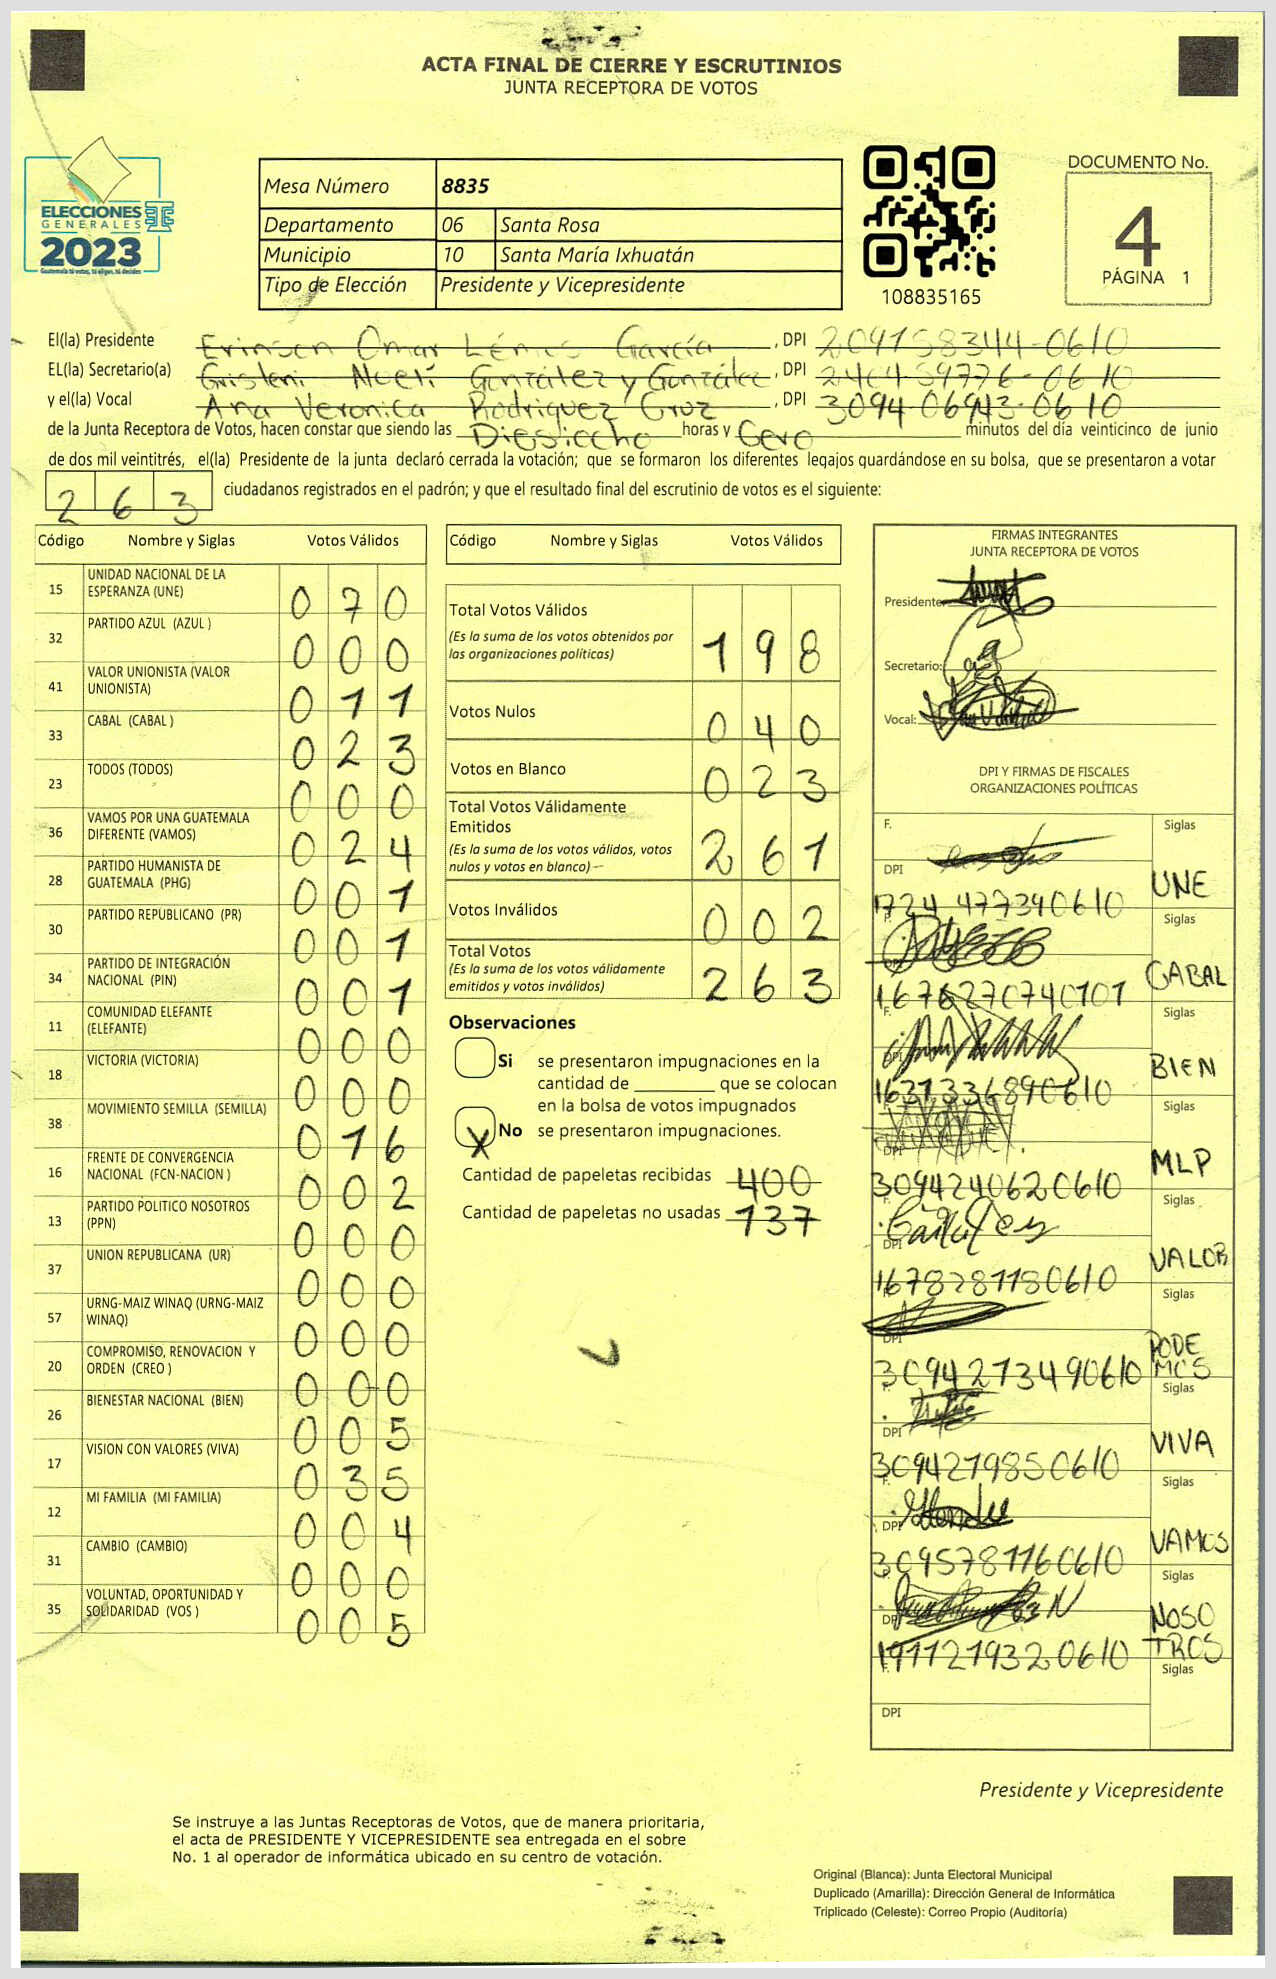 ACTA FINAL DE CIERRE Y ESCRUTINIOS
JUNTA RECEPTORA DE VOTOS
ELECCIONES
GENERALES
2023
Guatemala tú votas, tú eliges, tú decides
Mesa Número 8835
Departamento 06 Santa Rosa
Municipio 10 Santa María Ixhuatán
Tipo de Elección Presidente y Vicepresidente
108835165
DOCUMENTO No.
4
PÁGINA 1
El(la) Presidente Omar García , DPI
EL(la) Secretario(a) González y González , DPI
y el(la) Vocal Ana Veronica Rodriguez Cruz , DPI 3094 06943-0610
de la Junta Receptora de Votos, hacen constar que siendo las Diesiocho horas y Cero minutos del día veinticinco de junio
de dos mil veintitrés, el(la) Presidente de la junta declaró cerrada la votación; que se formaron los diferentes legajos guardándose en su bolsa, que se presentaron a votar
263 ciudadanos registrados en el padrón; y que el resultado final del escrutinio de votos es el siguiente:
Código Nombre y Siglas Votos Válidos
15 UNIDAD NACIONAL DE LA ESPERANZA (UNE) 070
32 PARTIDO AZUL (AZUL ) 000
41 VALOR UNIONISTA (VALOR UNIONISTA) 011
33 CABAL (CABAL ) 023
23 TODOS (TODOS) 000
36 VAMOS POR UNA GUATEMALA DIFERENTE (VAMOS) 024
28 PARTIDO HUMANISTA DE GUATEMALA (PHG) 001
30 PARTIDO REPUBLICANO (PR) 001
34 PARTIDO DE INTEGRACIÓN NACIONAL (PIN) 001
11 COMUNIDAD ELEFANTE (ELEFANTE) 000
18 VICTORIA (VICTORIA) 000
38 MOVIMIENTO SEMILLA (SEMILLA) 016
16 FRENTE DE CONVERGENCIA NACIONAL (FCN-NACION ) 002
13 PARTIDO POLITICO NOSOTROS (PPN) 000
37 UNION REPUBLICANA (UR) 000
57 URNG-MAIZ WINAQ (URNG-MAIZ WINAQ) 000
20 COMPROMISO, RENOVACION Y ORDEN (CREO ) 000
26 BIENESTAR NACIONAL (BIEN) 005
17 VISION CON VALORES (VIVA) 035
12 MI FAMILIA (MI FAMILIA) 004
31 CAMBIO (CAMBIO) 000
35 VOLUNTAD, OPORTUNIDAD Y SOLIDARIDAD (VOS ) 005
Código Nombre y Siglas Votos Válidos
Total Votos Válidos 198
(Es la suma de los votos obtenidos por
las organizaciones politicas)
Votos Nulos 040
Votos en Blanco 023
Total Votos Válidamente
Emitidos 261
(Es la suma de los votos válidos, votos
nulos y votos en blanco)
Votos Inválidos 002
Total Votos 263
(Es la suma de los votos válidamente
emitidos y votos inválidos)
Observaciones
Si se presentaron impugnaciones en la
cantidad de ________ que se colocan
en la bolsa de votos impugnados
X No se presentaron impugnaciones.
Cantidad de papeletas recibidas 400
Cantidad de papeletas no usadas 137
FIRMAS INTEGRANTES
JUNTA RECEPTORA DE VOTOS
Presidente:
Secretario:
Vocal:
DPI Y FIRMAS DE FISCALES
ORGANIZACIONES POLÍTICAS
F. Siglas
DPI 1724 477390610 UNE
F. Siglas
DPI 1676270740101 CABAL
F. Siglas
DPI 1637336890610 BIEN
Siglas
DPI 3094240620610 MLP
F. Siglas
DPI 1678281180610 VALOR
F. Siglas
DPI 3094273490610 PODEMOS
F. Siglas
DPI 3094279850610 VIVA
F. Siglas
DPI 3095781160610 VAMOS
F. Siglas
DPI 1911219320610 NOSOTROS
F. Siglas
DPI
Presidente y Vicepresidente
Se instruye a las Juntas Receptoras de Votos, que de manera prioritaria,
el acta de PRESIDENTE Y VICEPRESIDENTE sea entregada en el sobre
No. 1 al operador de informática ubicado en su centro de votación.
Original (Blanca): Junta Electoral Municipal
Duplicado (Amarilla): Dirección General de Informática
Triplicado (Celeste): Correo Propio (Auditoría)